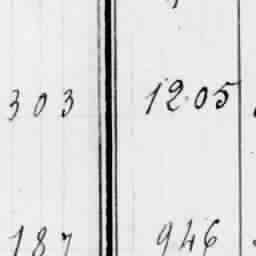 303 12.05
187 946